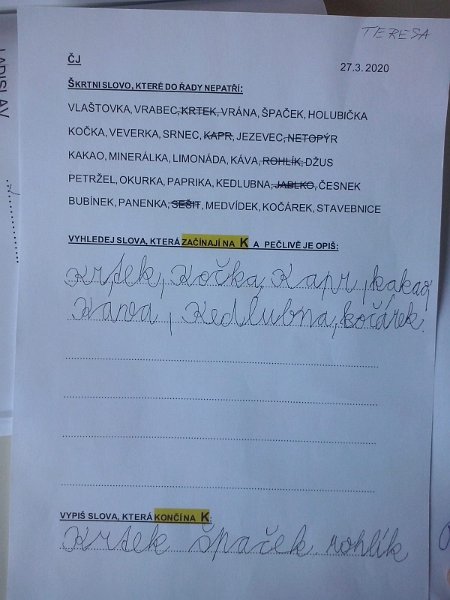 TEREZA
LADISLAV
ČJ
27.3. 2020
ŠKRTNI SLOVO, KTERÉ DO ŘADY NEPATŘÍ:
VLAŠTOVKA, VRABEC, KRTEK, VRÁNA, ŠPAČEK, HOLUBIČKA
KOČKA, VEVERKA, SRNEC, KAPR, JEZEVEC, NETOPÝR
KAKAO, MINERÁLKA, LIMONÁDA, KÁVA, ROHLÍK, DŽUS
PETRŽEL, OKURKA, PAPRIKA, KEDLUBNA, JABLKO, ČESNEK
BUBÍNEK, PANENKA, SEŠIT, MEDVÍDEK, KOČÁREK, STAVEBNICE
VYHLEDEJ SLOVA, KTERÁ ZAČÍNAJÍ NA K A PEČLIVĚ JE OPIŠ:
Krtek, Kočka, Kapr, kakao,
Káva, Kedlubna, kočárek.
VYPIŠ SLOVA, KTERÁ KONČÍ NA K:
Krtek špaček rohlík